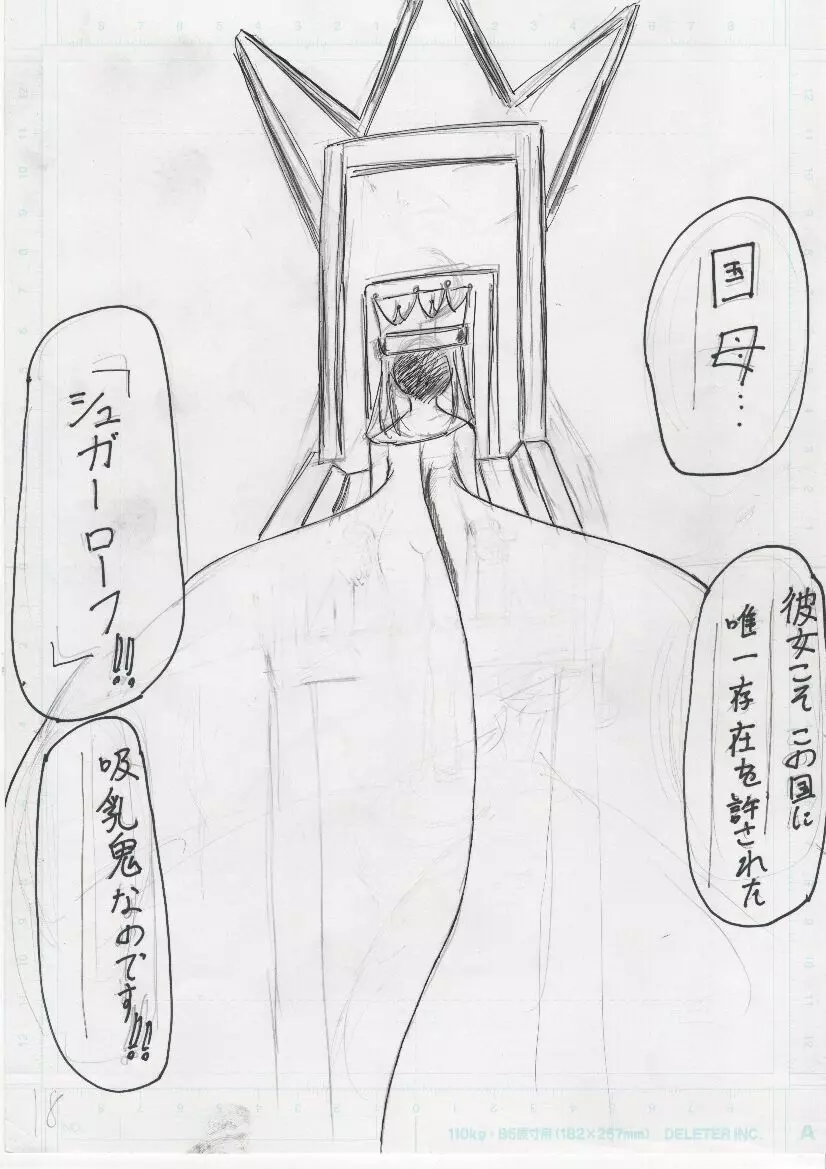 国母…
彼女こそこの国に
唯一存在を許された
「シュガーローフ」!!
吸乳鬼なのです!!
18
110kg・B5原寸用(182×267mm) DELETER INC. A